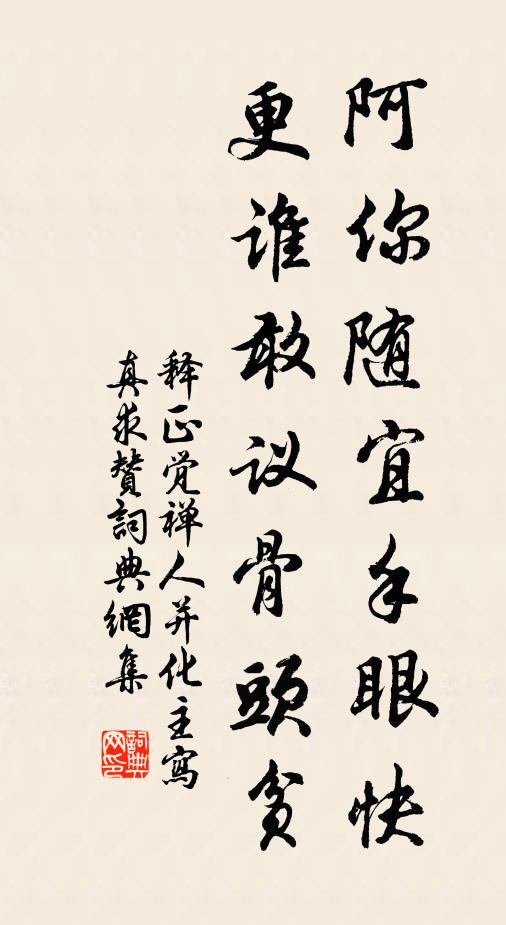 阿你随宜手眼快
更谁敢议骨頭贫
释正觉禅人并化主寫
真求赞詞典網集
詞典网印